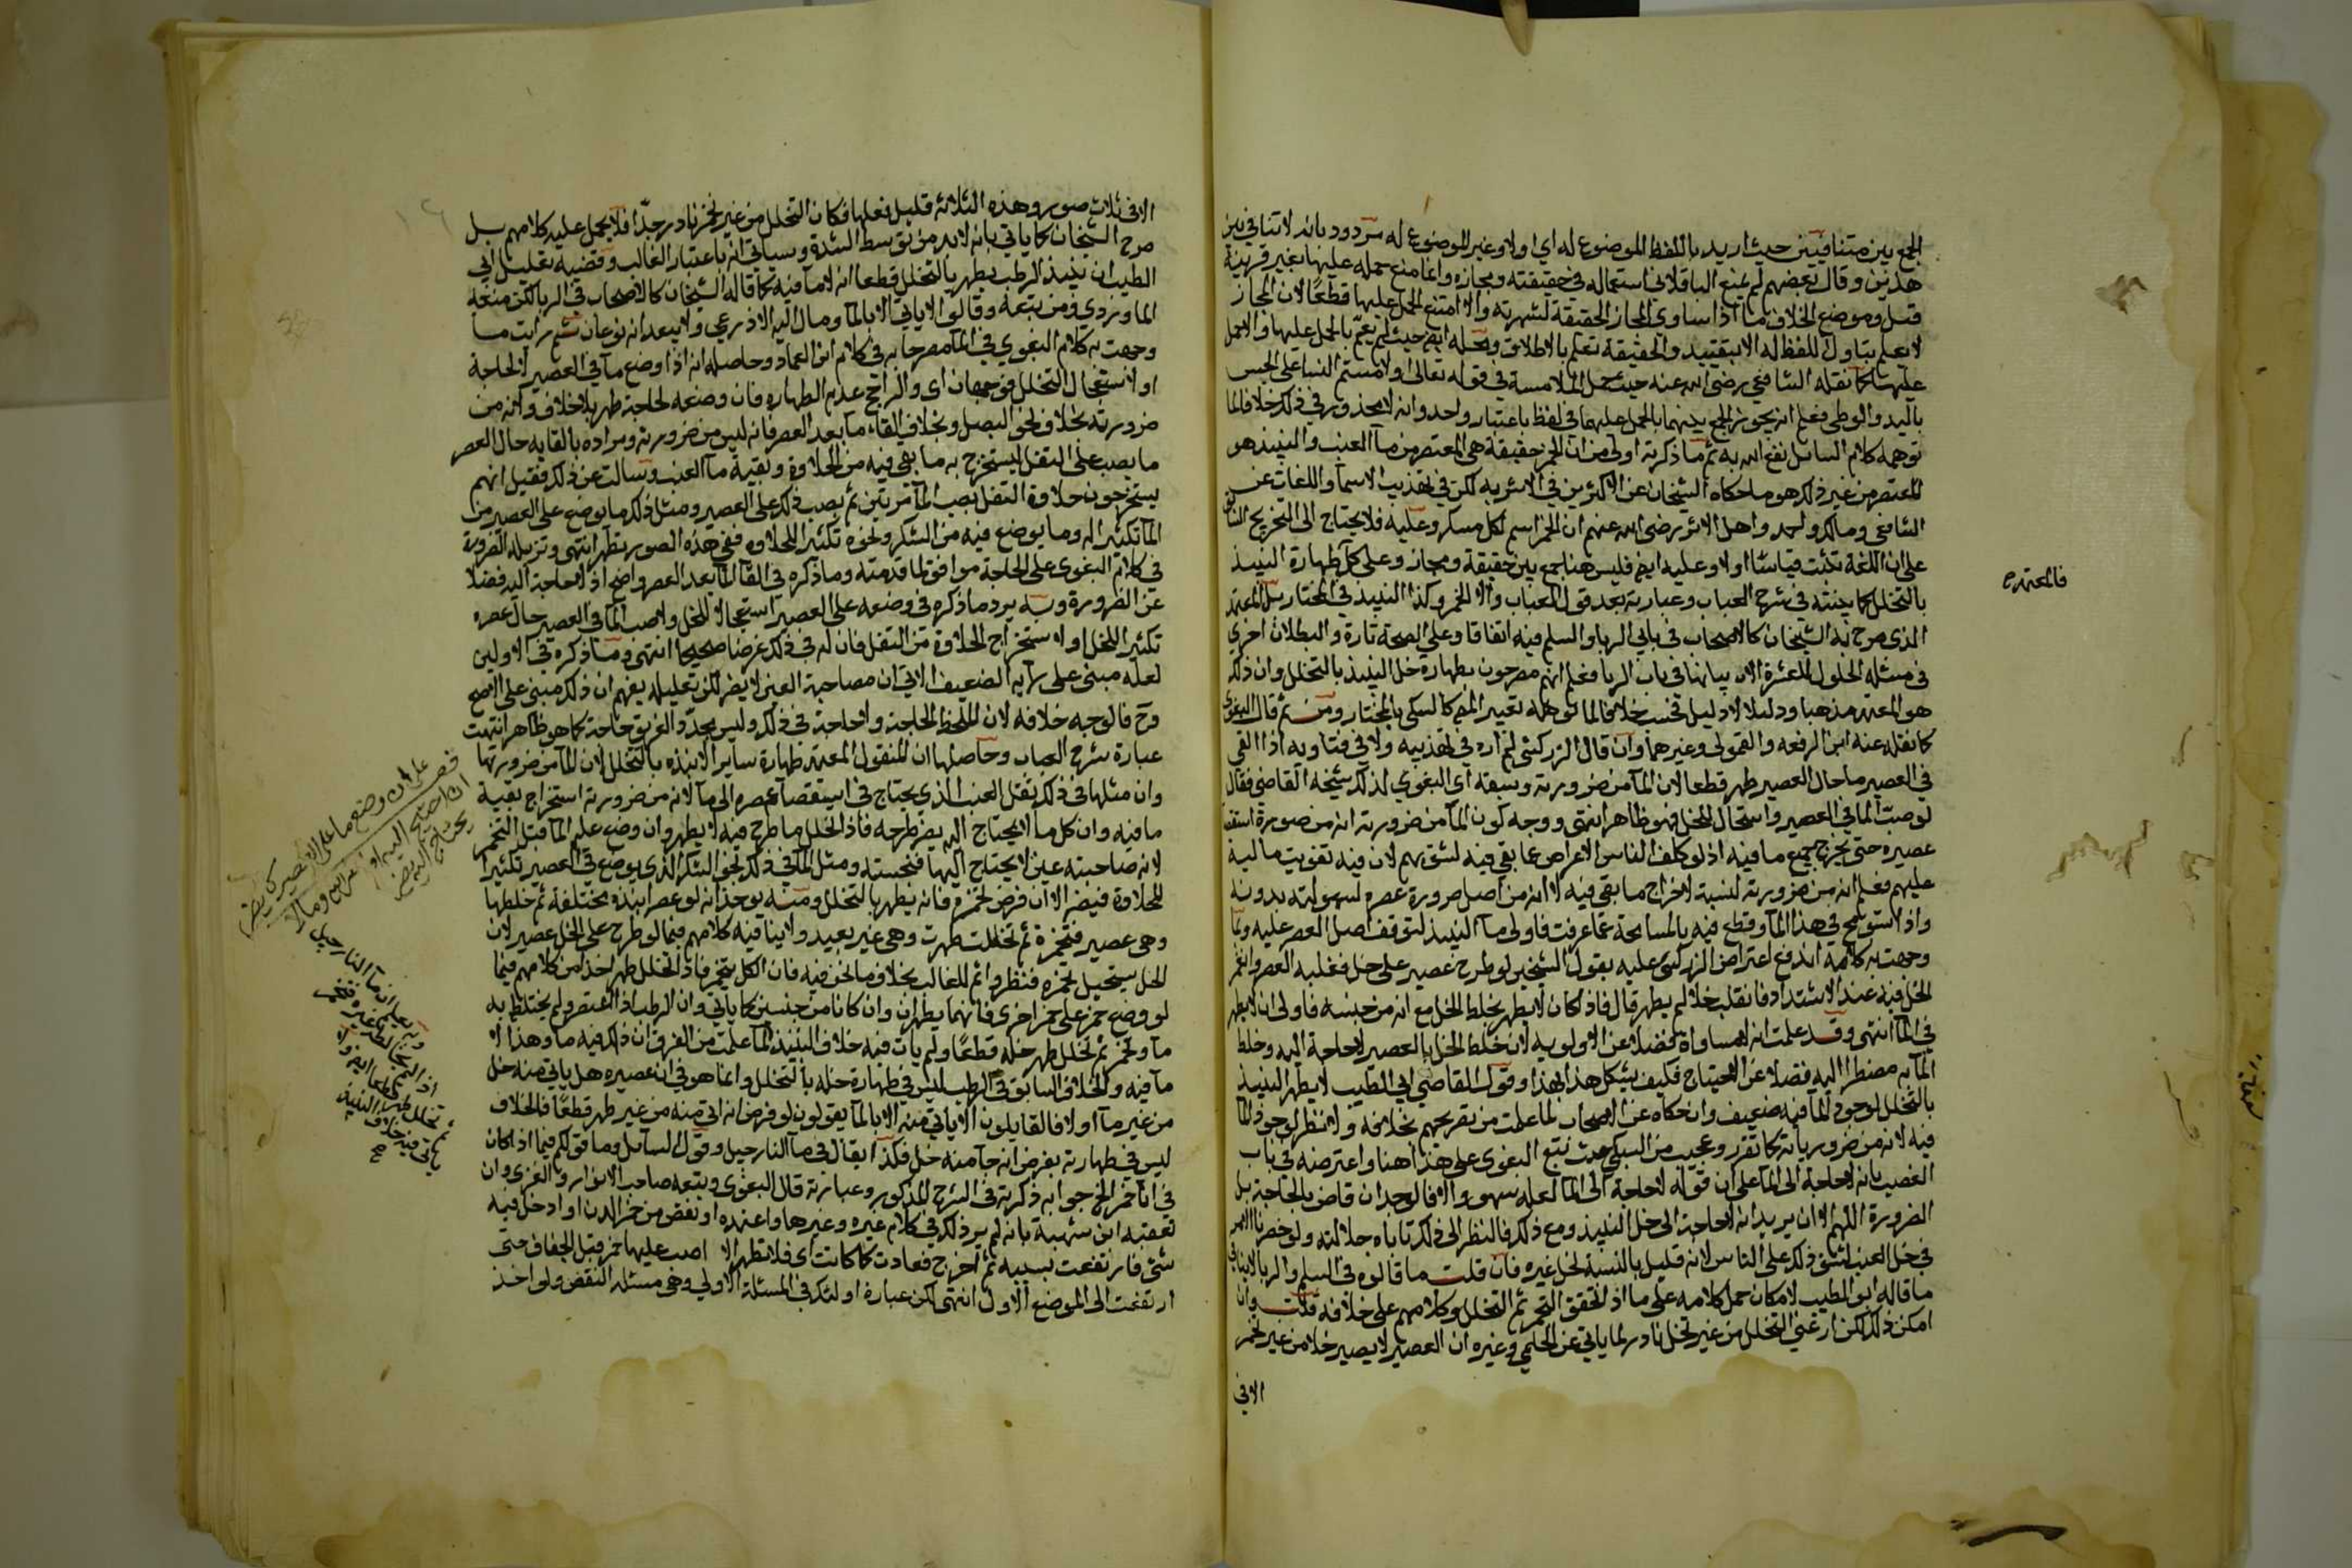 الجمع بين متنافيين حيث اريد باللفظ الموضوع له اي اولا وغير الموضوع له مردود بانه لا تنافي بين
هذين وقال بعضهم لم يمنع الباقلاني استعماله في حقيقته ومجازه وانما منع حمله عليهما بغير قرينة
قيل وموضع الخلاف ما اذا ساوى المجاز الحقيقة لشهرته والا امتنع الحمل عليها قطعا لان المجاز
لا يعلم بتناول اللفظ له الا بتقييد والحقيقة تعلم بالاطلاق ومحله ايضا حيث لم يعم بالحمل عليها والا حمل
عليهما كما نقله الشافعي رضي الله عنه حيث حمل الملامسة في قوله تعالى او لامستم النسا على الجس
باليد والوطي فعلم انه يجوز الجمع بينهما بالحمل عليهما في لفظ باعتبار واحد وانه لا محذور في ذلك خلافا لما
توهمه كلام السائل نفع الله به ثم ما ذكرته اولى من ان الخمر حقيقة هي المعتصر من ما العنب والنبيذ هو
المعتصر من غير ذلك هو ما حكاه الشيخان عن الاكثرين في الاشربه لكن في تهذيب الاسما واللغات عن
الشافعي ومالك واحمد واهل الاثر رضي الله عنهم ان الخمر اسم لكل مسكر وعليه فلا يحتاج الى التخريج الثاني
على ان اللغة تثبت قياسا اولا وعليه ايضا فليس هنا جمع بين حقيقة ومجاز وعلى كل طهارة النبيذ
بالتخلل كما بينته في شرح العباب وعبارته بعد قول العباب والا الخمر وكذا النبيذ في المختار بل المعتمد
الذي صرح به الشيخان كالاصحاب في بابي الربا والسلم فيه اتفاقا وعلى الصحة تارة والبطلان اخرى
في مسئلة الخلول العشرة الات بيانها في باب الربا فعلم انهم مصرحون بطهارة خل النبيذ بالتخلل وان ذلك
هو المعتمد مذهبا ودليلا لا دليل فحسب خلافا لما توهمه تعبير المص كالسبكي بالمختار ومن ثم قال البغوي
كما نقله عنه ابن الرفعه والقمولي وغيرهما وان قال الزركشي لم اره في تهذيبه ولا في فتاويه اذا القي
في العصير ما حال العصير طهر قطعا لان المآ من ضرورته وسبقه اي البغوي لذلك شيخه القاضي فقال
لو صب الما في العصير واستحال الخل فهو ظاهر انتهى ووجه كون المآ من ضرورته انه من ضرورة
عصيره حتى يخرج جميع ما فيه اذ لو كلف الناس الاعراض عما بقي فيه لشق بهم لان فيه تفويت مالية
عليهم فعلم انه من ضرورته لنسبة لاخراج ما بقي فيه لا انه من اصل ضرورة عصره لسهولته بدونه
واذا سومح في هذا المآ وقطع فيه بالمسامحة عما عرفت فاولى مآ النبيذ لتوقف اصل العصر عليه وبما
وجهت به كلامه اندفع اعتراض الزركشي عليه بقول الشيخين لو طرح عصير على خل فغلبه العصر وانغمر
الخل فيه عند الاشتداد فانقلب خلا لم يطهر قال فاذا كان لا يطهر بخلط الخل مع انه من جنسه فاولى ان لا يطهر
في المآ انتهى وقد علمت انه لا مساواة فضلا عن الاولويه لان خلط الخل بالعصير لا حاجة اليه وخلط
المآ به مضطر اليه فضلا عن الاحتياج فكيف يشكل هذا بهذا وقول القاضي ابي الطيب لا يطهر النبيذ
بالتخلل لوجود المآ فيه ضعيف وان حكاه عن الاصحاب لما علمت من تصريحهم بخلافه ولا نظر لوجود المآ
فيه لانه من ضروريأته كما تقرر وعجيب من السبكي حيث تبع البغوي على هذا هنا واعترضه في باب
الغصب بانه لا حاجة الى الما على ان قوله لا حاجة الى المآ لعله سهو والا فالوجدان قاض بالحاجة بل
الضرورة اللهم الا ان يريد انه لا حاجة الى خل النبيذ ومع ذلك فالنظر الى ذلك تاباه جلالته ولو حصرنا الامر
في خل العنب لشق ذلك على الناس لانه قليل بالنسبة لخل غيره فان قلت ما قالوه في السلم والربا لا ينافي
ما قاله ابو الطيب لامكان حمل كلامه على ما اذا تحقق التخمر ثم التخلل وكلامهم على خلافه قلت وان
امكن ذلك لكن التخلل من غير تخلل نادر لما ياتي عن الحليمي وغيره ان العصير لا يصير خلا من غير تخمر
الا في
فالمعتمده
الا في ثلاث صور وهذه الثلاثه قليل فعلها فكان التخلل من غير تخمر نادر جدا فلا يحمل عليه كلامهم بل
صرح الشيخان كما ياتي بانه لا بد من توسط الشدة وسياتي انه باعتبار الغالب وقضيه تعليل ابي
الطيب ان نبيذ الرطب يطهر بالتخلل قطعا انه لا مآ فيه كما قاله الشيخان كالاصحاب في الربا لكن منعه
الماوردي ومن تبعه وقالوا لا ياتي الا بالمآ ومال اليه الاذرعي ولا يبعد انه نوعان ثم رايت ما
وجهت به كلام البغوي في المآ مصرحا به في كلام ابن العماد وحاصله انه اذا وضع مآ في العصير لا لحاجة
او لاستعجال التخلل فوجهان اي والراجح عدم الطهاره فان وضعه لحاجة طهر بلا خلاف وكانه من
ضرورته بخلاف نحو البصل وبخلاف القاء مآ بعد العصر فانه ليس من ضرورته ومراده بالقايه حال العصر
ما يصب على الثفل ليستخرج به ما بقي فيه من الحلاوة وبقية مآ العنب وسالت عن ذلك فقيل انهم
يستخرجون حلاوة الثفل بصب المآ مرتين ثم يصب ذلك على العصير ومثل ذلك ما يوضع على العصير من
المآ تكثيرا له وما يوضع فيه من السكر ونحوه تكثيرا للحلاوه ففي هذه الصور يطهر انتهى وتنزيله الضرورة
في كلام البغوي على الحاجة موافق لما قدمته وما ذكره في القا المآ بعد العصر واضح اذ لا حاجة اليه فضلا
عن الضرورة وبه يرد ما ذكره في وضعه على العصير استعجالا للخل ولا صب المآ في العصير حال عصره
تكثيرا للخل او لاستخراج الحلاوة من الثفل فان له في ذلك غرضا صحيحا انتهى وما ذكره في الاولين
لعله مبني على رايه الضعيف الاتي ان مصاحبة العين لا يضر لكن تعليله يفهم ان ذلك مبني على الاصح
وح فالوجه خلافه لان الملحظ الحاجة ولا حاجة في ذلك وليس مجرد الغرض حاجة كما هو ظاهر انتهت
عبارة شرح العباب وحاصلها ان المنقول المعتمد طهارة ساير الانبذه بالتخلل لان المآ من ضرورتها
وان مثلها في ذلك ثفل العنب الذي يحتاج في استقصآ عصره الى مآ لانه من ضرورته استخراج بقية
ما فيه وان كل ما لا يحتاج اليه يضر طرحه فاذا تخلل ما طرح فيه لا يطهر وان وضع عليه المآ قبل التخمر
لانه صاحبته عين لا يحتاج اليها فنجسته ومثل المآ في ذلك نحو السكر الذي يوضع في العصير تكثيرا
للحلاوة فيضر الا ان فرض تخمره فانه يطهر بالتخلل ومنه يوخذ انه لو عصر انبذه مختلفة ثم خلطها
وهي عصير فتخمرة ثم تخللت طهرت وهي غير بعيد ولا ينافيه كلامهم فيما لو طرح على الخل عصير لان
الخل يستحيل تخمره فنظروا ثم للغالب بخلاف ما نحن فيه فان الكل يتخمر فاذا تخلل طهر اخذا من كلامهم فيما
لو وضع خمر على خمر اخرى فانهما يطهران وان كانا من جنسين كما ياتي وان الرطب اذا اعتصر ولم يختلط به
مآ وتخمر ثم تخلل طهر خله قطعا ولم يات فيه خلاف النبيذ لما علمت من الفرق ان ذلك فيه ما وهذا لا
مآ فيه والخلاف السابق في الرطب ليس في طهارة خله بالتخلل وانما هو في ان عصيره هل ياتي منه خل
من غير مآ اولا فالقايلون لا ياتي منه الا بالمآ يقولون لو فرض انه اتى منه من غير طهر قطعا فالخلاف
ليس في طهارته بفرض انه جآ منه خل فكذا يقال في مآ النارجيل وقول السائل وما قولكم فيما اذا كان
في انآ خمر الخ جوابه ذكرته في الشرح المذكور وعبارته قال البغوي وتبعه صاحب الانوار والغزي وان
تعقبه ابن شهبة بانه لم ير ذلك في كلام غيره وغيرها واعتمده او نقص من خمر الدن او ادخل فيه
شي فارتفعت بسببه ثم اخرج فعادت كما كانت اي فلا تطهر الا ان صب عليها خمر قبل الجفاف حتى
ارتفعت الى الموضع الاول انتهى لكن عبارة اولئك في المسئلة الاولي وهي مسئلة النقص ولو اخذ
وبه يعلم ان مآ النارجيل
اذا لم يخالطه غيره فتخمر
ثم تخلل طهر قطعا ايضا ولا
ياتي فيه خلاف النبيذ
صح